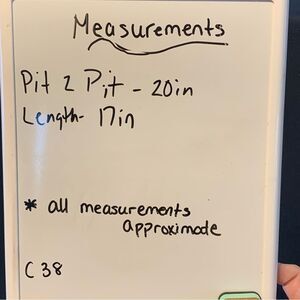 Measurements
Pit 2 Pit - 20in
Length - 17in
* all measurements
approximode
C38